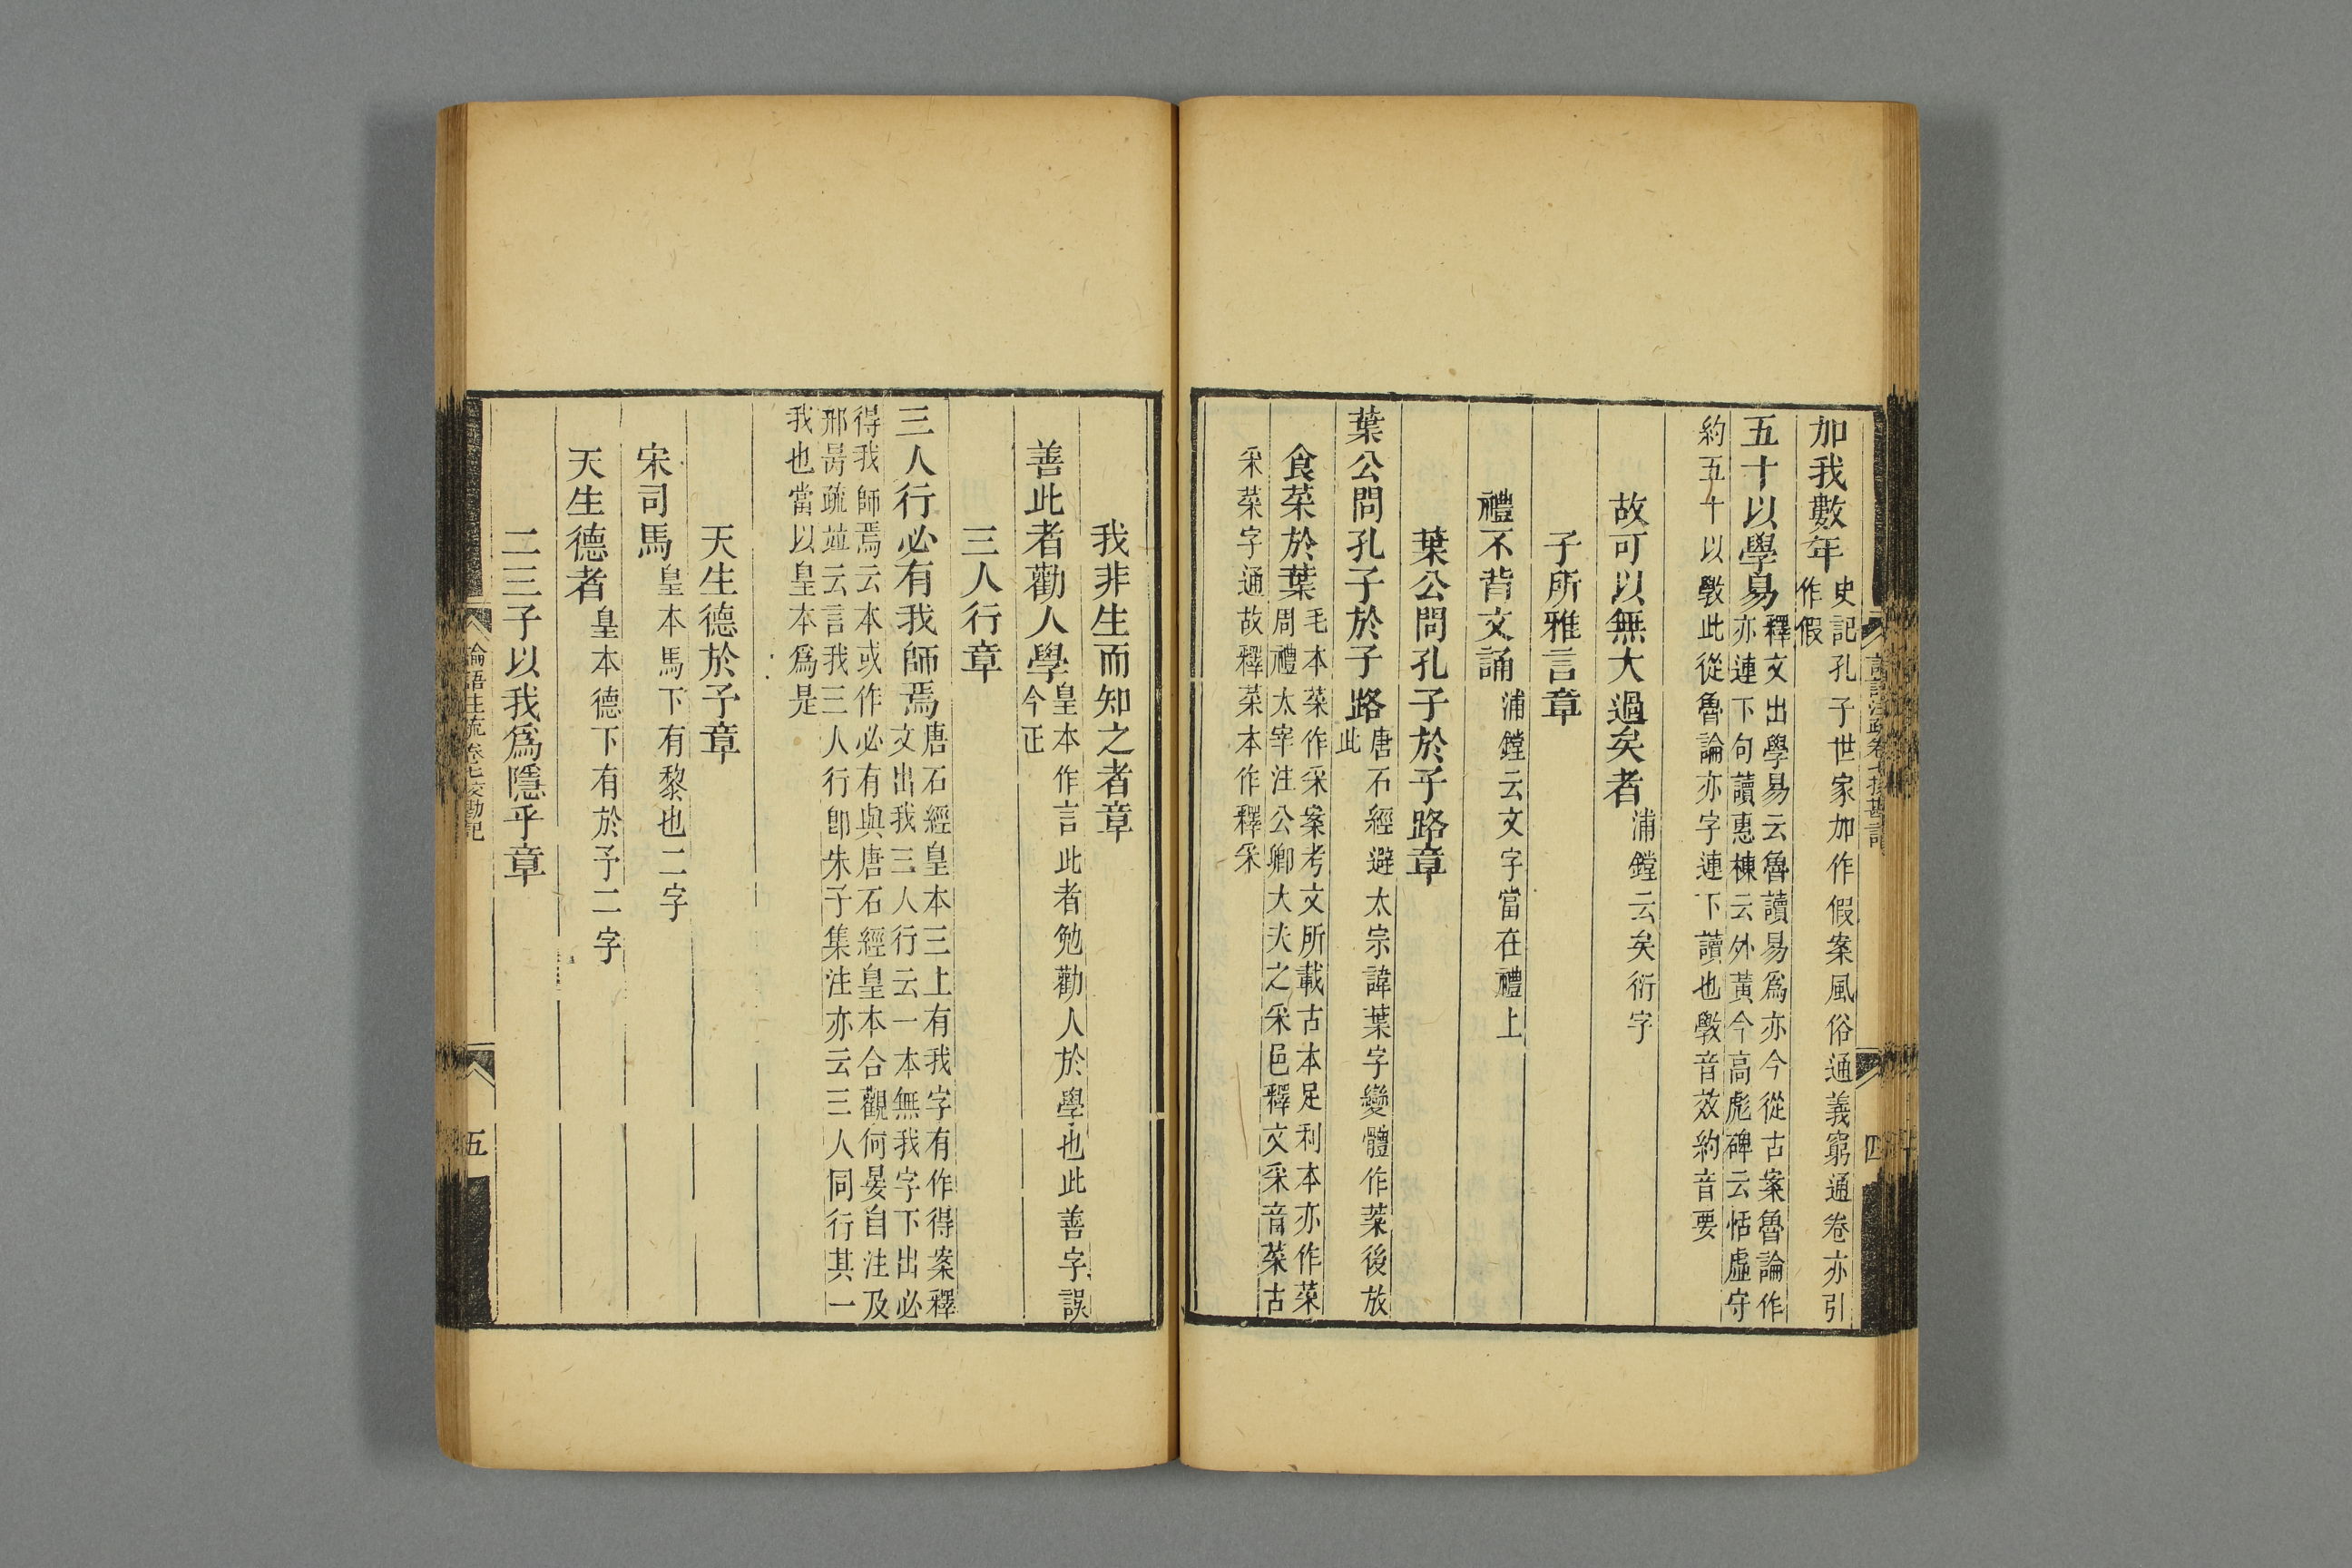 加我數年史記孔子世家加作假案風俗通義窮通卷亦引作假
五十以學易釋文出學易云魯讀易爲亦今從古案魯論作亦連下句讀惠棟云外黃令高彪碑云恬虛守
約五十以斆此從魯論亦字連下讀也斆音效約音要
故可以無大過矣者浦鏜云矣衍字
子所雅言章
禮不背文誦浦鏜云文字當在禮上
葉公問孔子於子路章
葉公問孔子於子路唐石經避太宗諱葉字變體作葉後放此
食菜於葉毛本菜作采案考文所載古本足利本亦作菜周禮太宰注公卿大夫之采邑釋文采音菜古
采菜字通故釋菜本作釋采
論語注疏卷七挍勘記
四
我非生而知之者章
善此者勸人學皇本作言此者勉勸人於學也此善字誤今正
三人行章
三人行必有我師焉唐石經皇本三上有我字有作得案釋文出我三人行云一本無我字下出必
得我師焉云本或作必有與唐石經皇本合觀何晏自注及邢昺疏竝云言我三人行卽朱子集注亦云三人同行其一
我也當以皇本爲是
天生德於予章
宋司馬皇本馬下有黎也二字
天生德者皇本德下有於予二字
二三子以我爲隱乎章
論語注疏卷七挍勘記
五